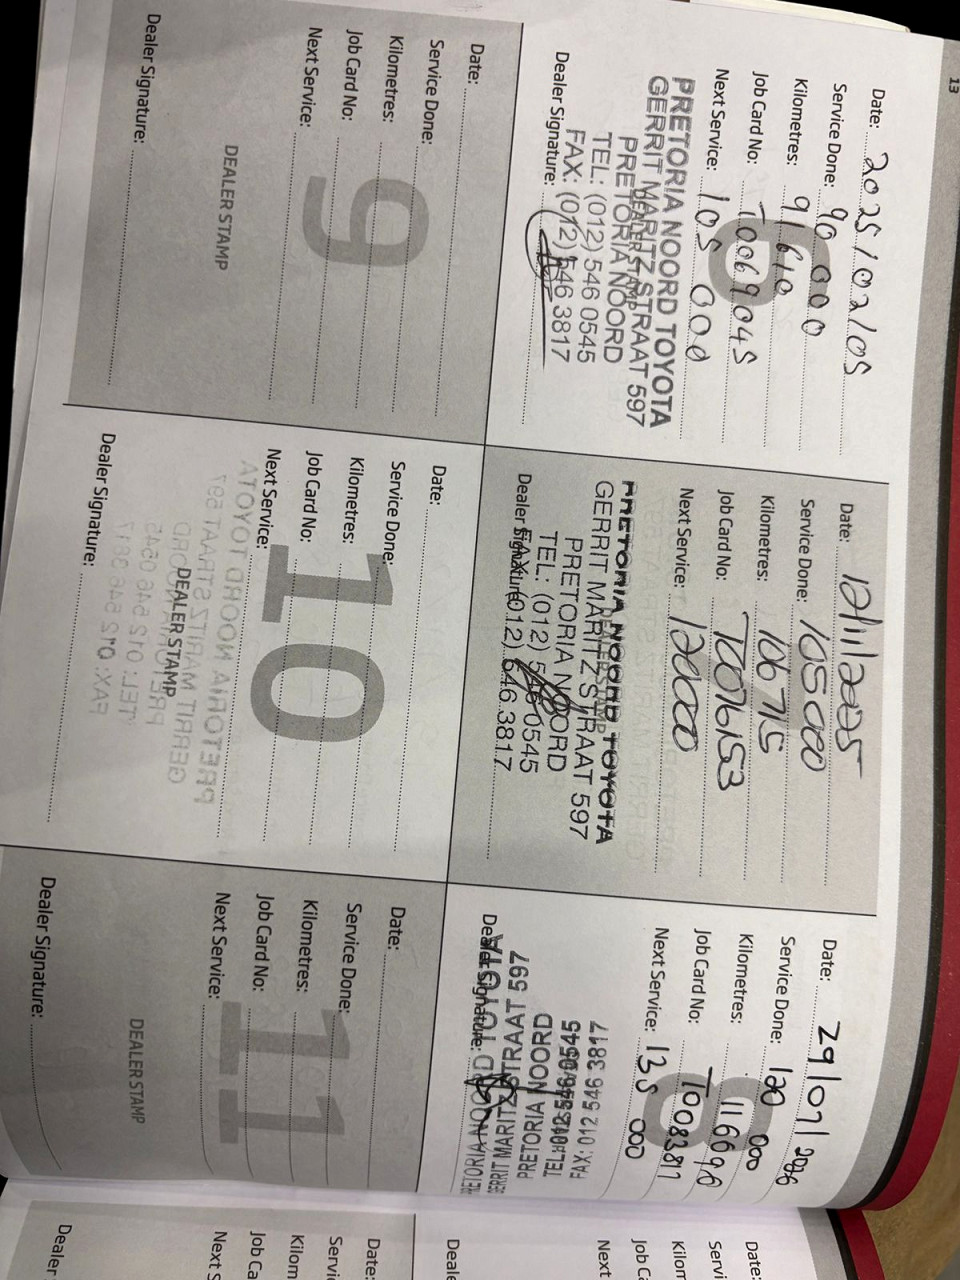 13
Date: 2025/02/05
Service Done: 90 000
Kilometres: 91610
Job Card No: T0069045
Next Service: 105 000
PRETORIA NOORD TOYOTA
GERRIT MARITZ STRAAT 597
DEALER STAMP
PRETORIA NOORD
TEL: (012) 546 0545
FAX: (012) 546 3817
Dealer Signature:
6
Date: 12/11/2025
Service Done: 105000
Kilometres: 106715
Job Card No: T0076153
Next Service: 120000
PRETORIA NOORD TOYOTA
DEALER STAMP
GERRIT MARITZ STRAAT 597
PRETORIA NOORD
TEL: (012) 546 0545
FAX: (012) 546 3817
Dealer Signature:
Date: 29/07/2026
Service Done: 120 000
Kilometres: 116696
Job Card No: T0083817
Next Service: 135 000
8
FAX: 012 546 3817
PRETORIA NOORD
GERRIT MARITZ STRAAT 597
PRETORIA NOORD TOYOTA
Dealer Signature:
Date:
Service Done:
Kilometres:
Job Card No:
Next Service:
9
DEALER STAMP
Dealer Signature:
Date:
Service Done:
Kilometres:
Job Card No:
Next Service:
10
DEALER STAMP
Dealer Signature:
Date:
Service Done:
Kilometres:
Job Card No:
Next Service:
11
DEALER STAMP
Dealer Signature:
Date:
Servi
Kilom
Job Ca
Next
Deale
Date:
Servi
Kilom
Job Ca
Next S
Dealer